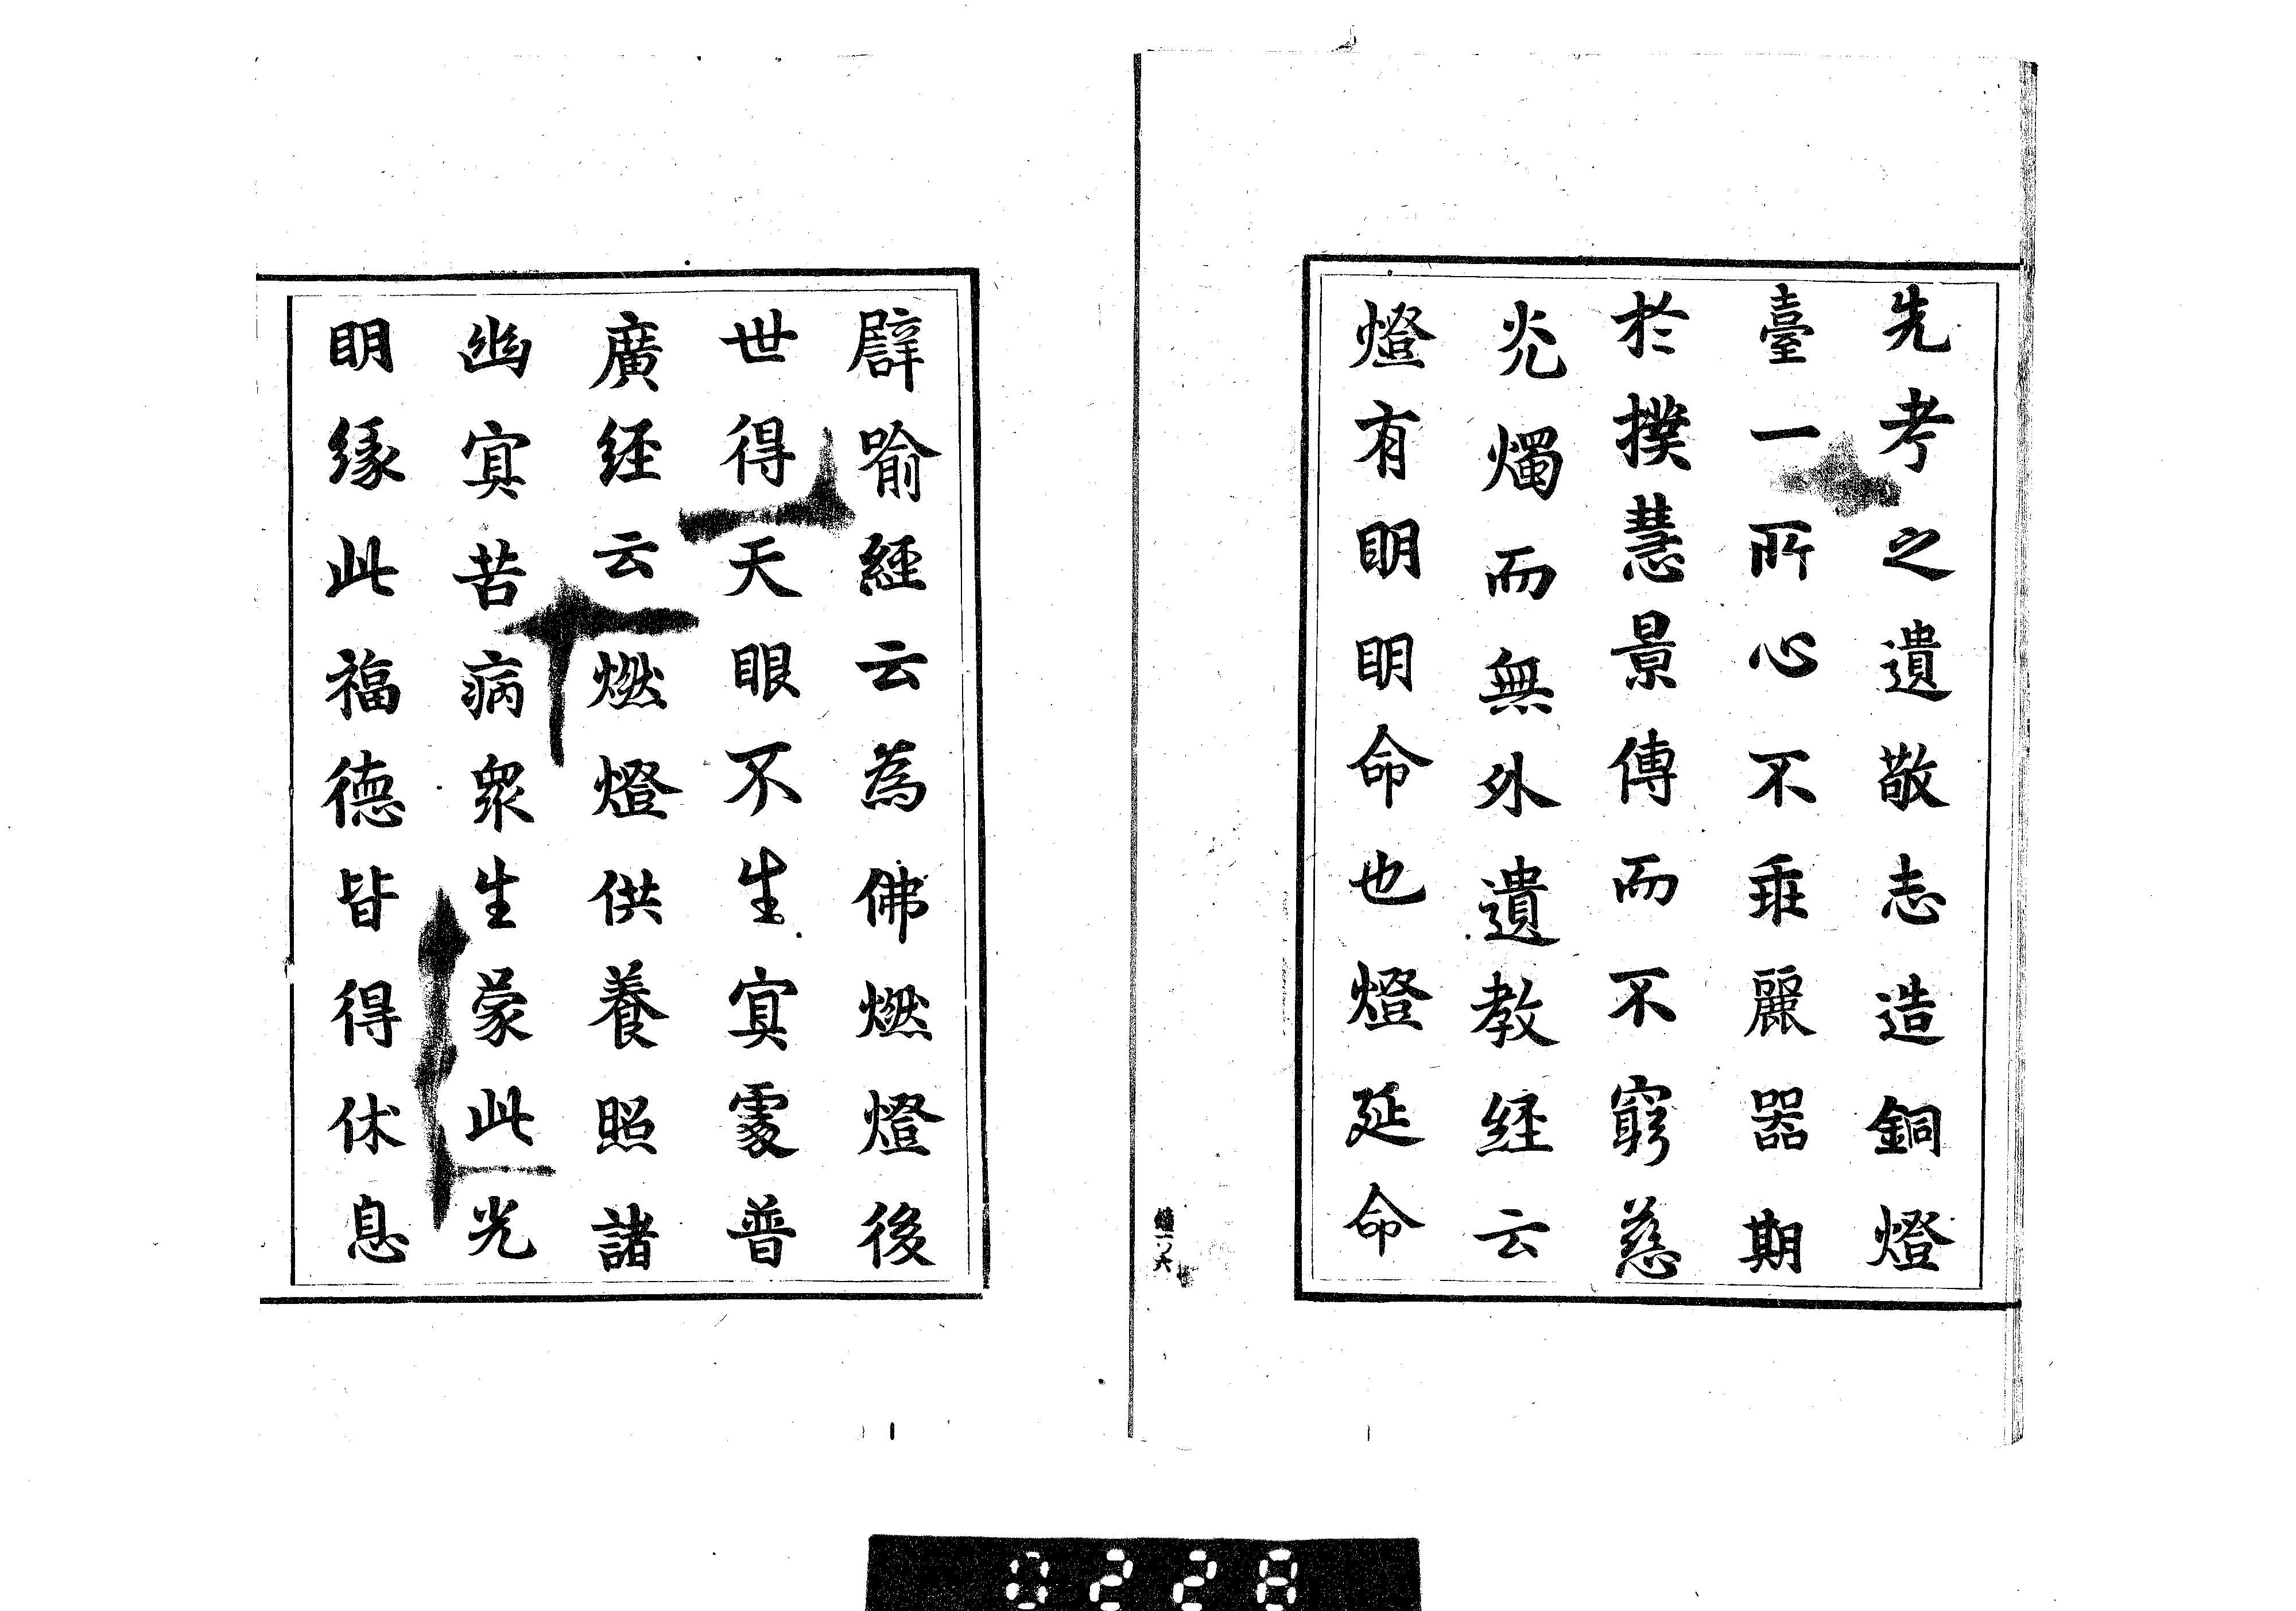 先考之遺敬志造銅燈
臺一所心不乖麗器期
於撲慧景傳而不窮慈
光燭而無外遺教経云
燈有明明命也燈延命
譬喻經云為佛燃燈後
世得天眼不生冥處普
廣経云燃燈供養照諸
幽冥苦病衆生蒙此光
明緣此福德皆得休息
0228